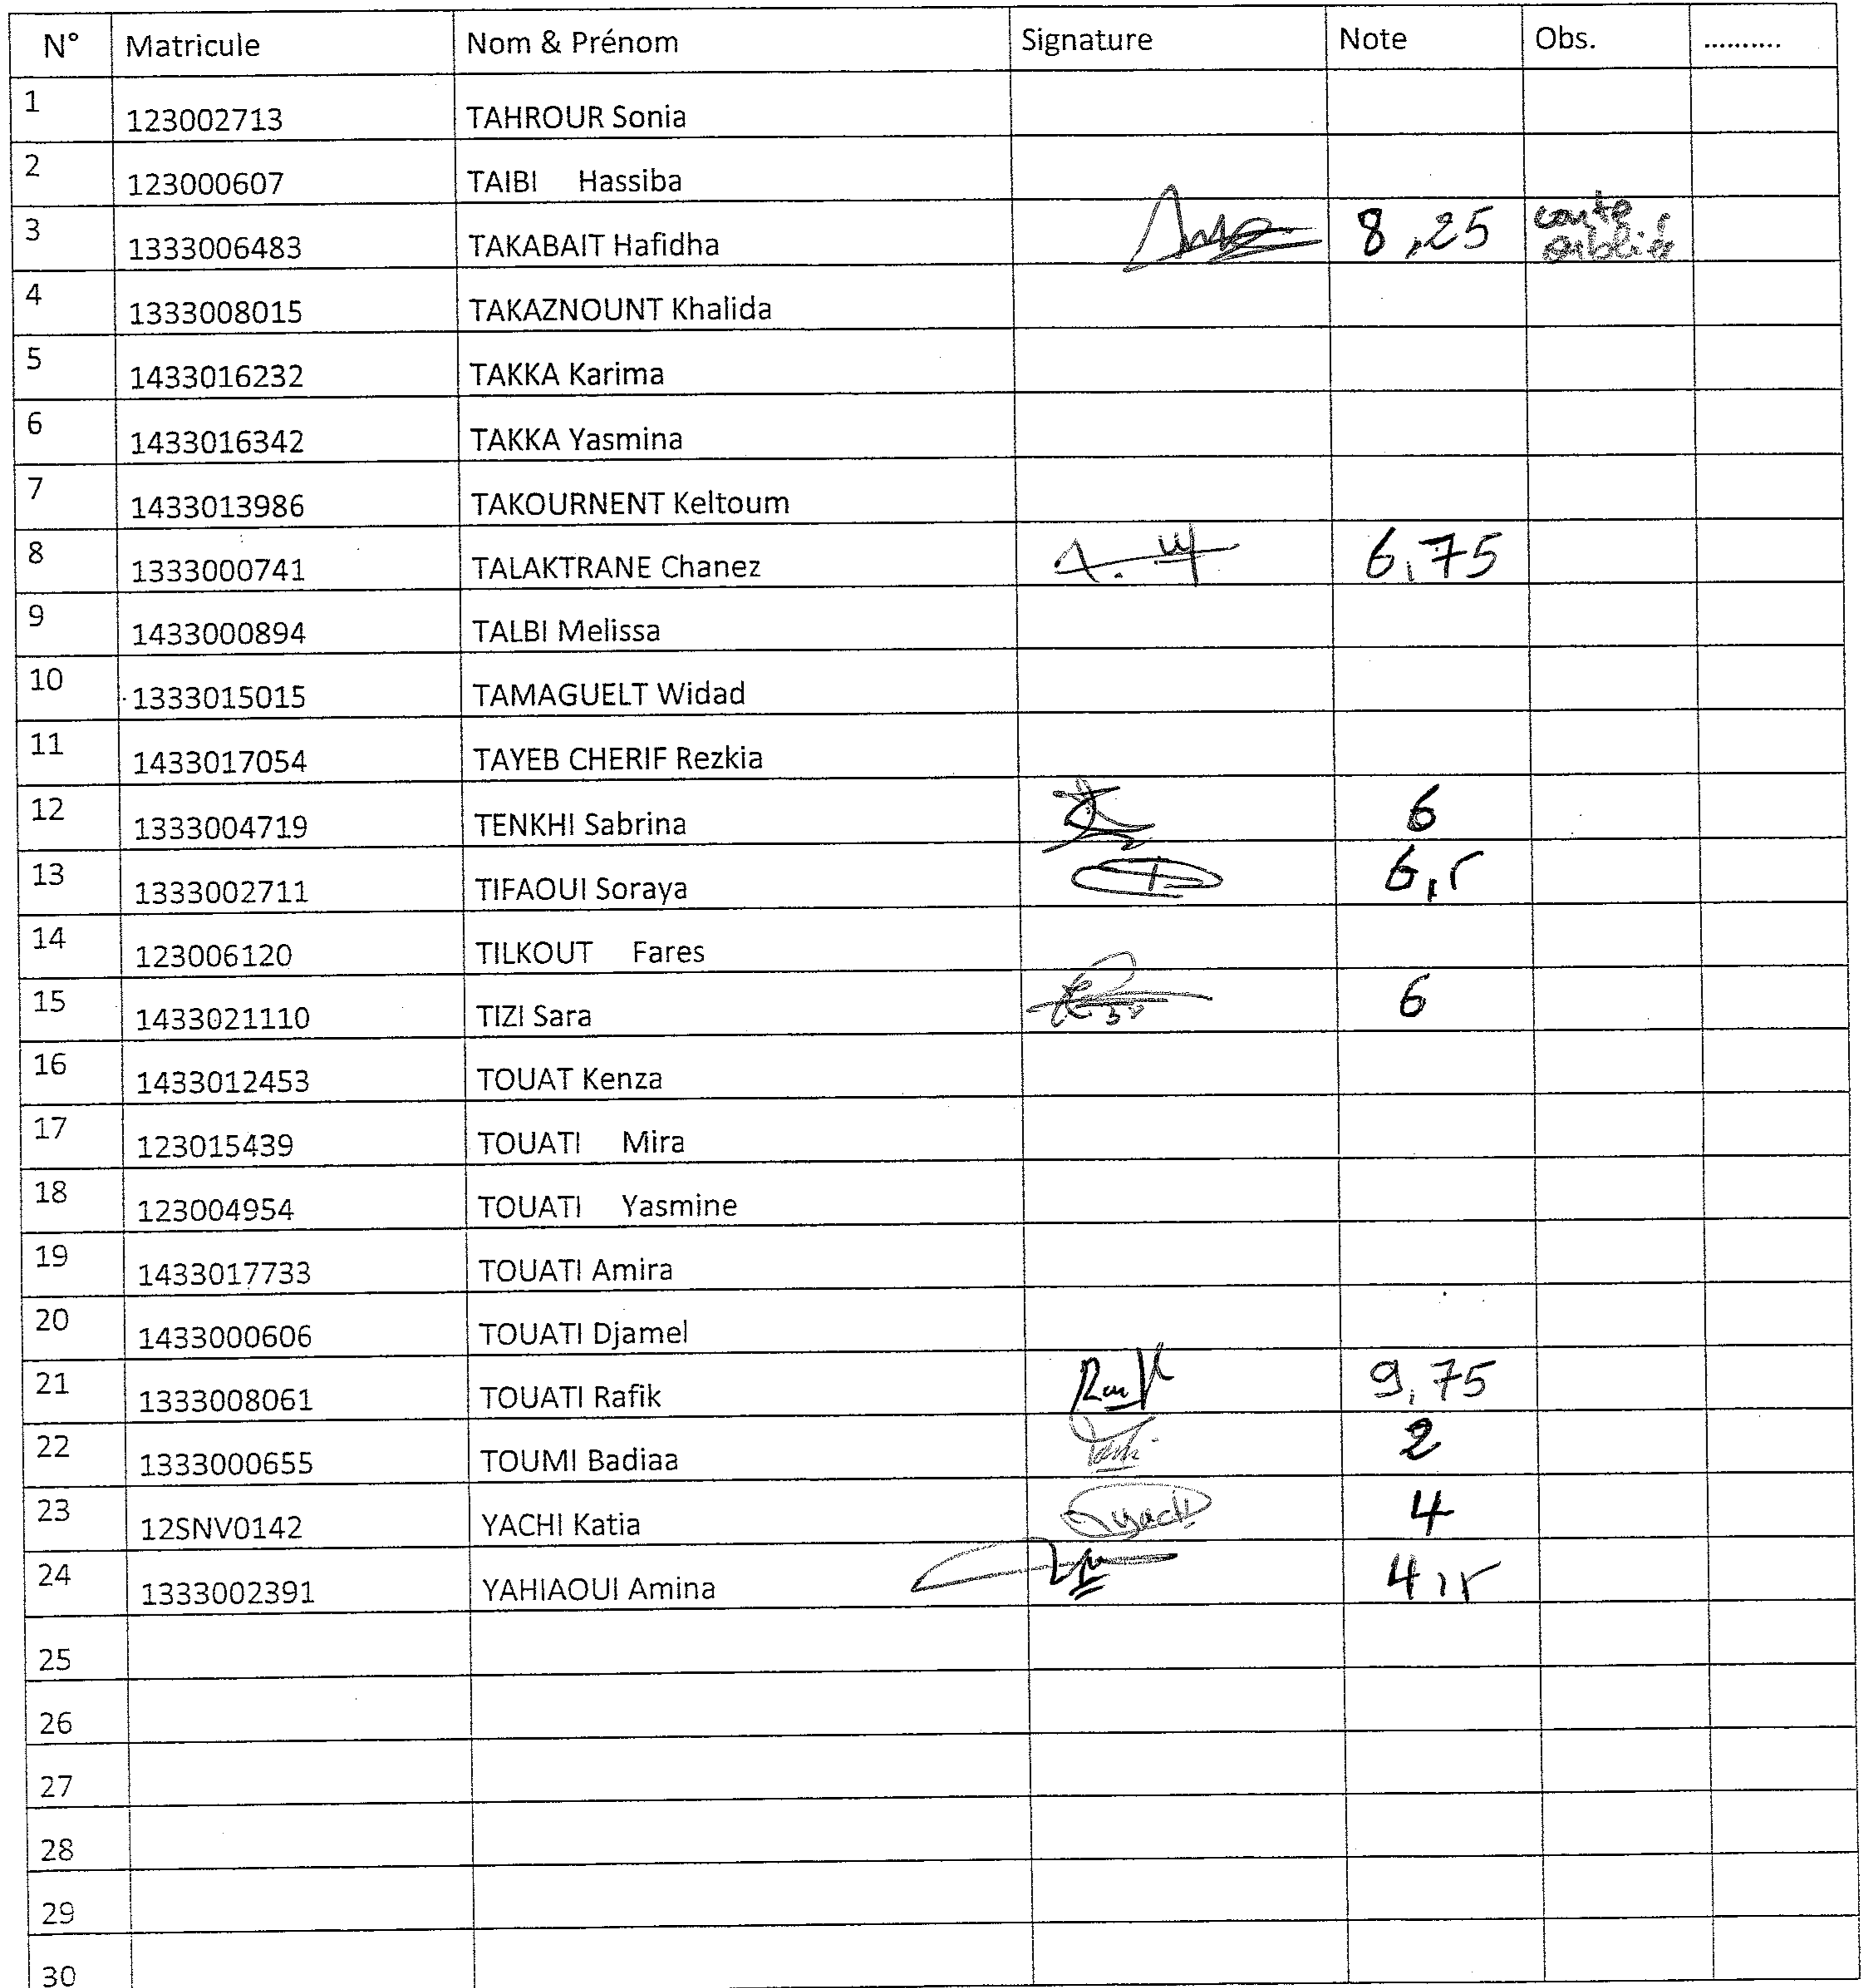 N° Matricule Nom & Prénom Signature Note Obs. ..........
1 123002713 TAHROUR Sonia
2 123000607 TAIBI Hassiba
3 1333006483 TAKABAIT Hafidha 8,25 carte oubliée
4 1333008015 TAKAZNOUNT Khalida
5 1433016232 TAKKA Karima
6 1433016342 TAKKA Yasmina
7 1433013986 TAKOURNENT Keltoum
8 1333000741 TALAKTRANE Chanez 6,75
9 1433000894 TALBI Melissa
10 1333015015 TAMAGUELT Widad
11 1433017054 TAYEB CHERIF Rezkia
12 1333004719 TENKHI Sabrina 6
13 1333002711 TIFAOUI Soraya 6,5
14 123006120 TILKOUT Fares
15 1433021110 TIZI Sara 6
16 1433012453 TOUAT Kenza
17 123015439 TOUATI Mira
18 123004954 TOUATI Yasmine
19 1433017733 TOUATI Amira
20 1433000606 TOUATI Djamel
21 1333008061 TOUATI Rafik 9,75
22 1333000655 TOUMI Badiaa 2
23 12SNV0142 YACHI Katia 4
24 1333002391 YAHIAOUI Amina 4,5
25
26
27
28
29
30